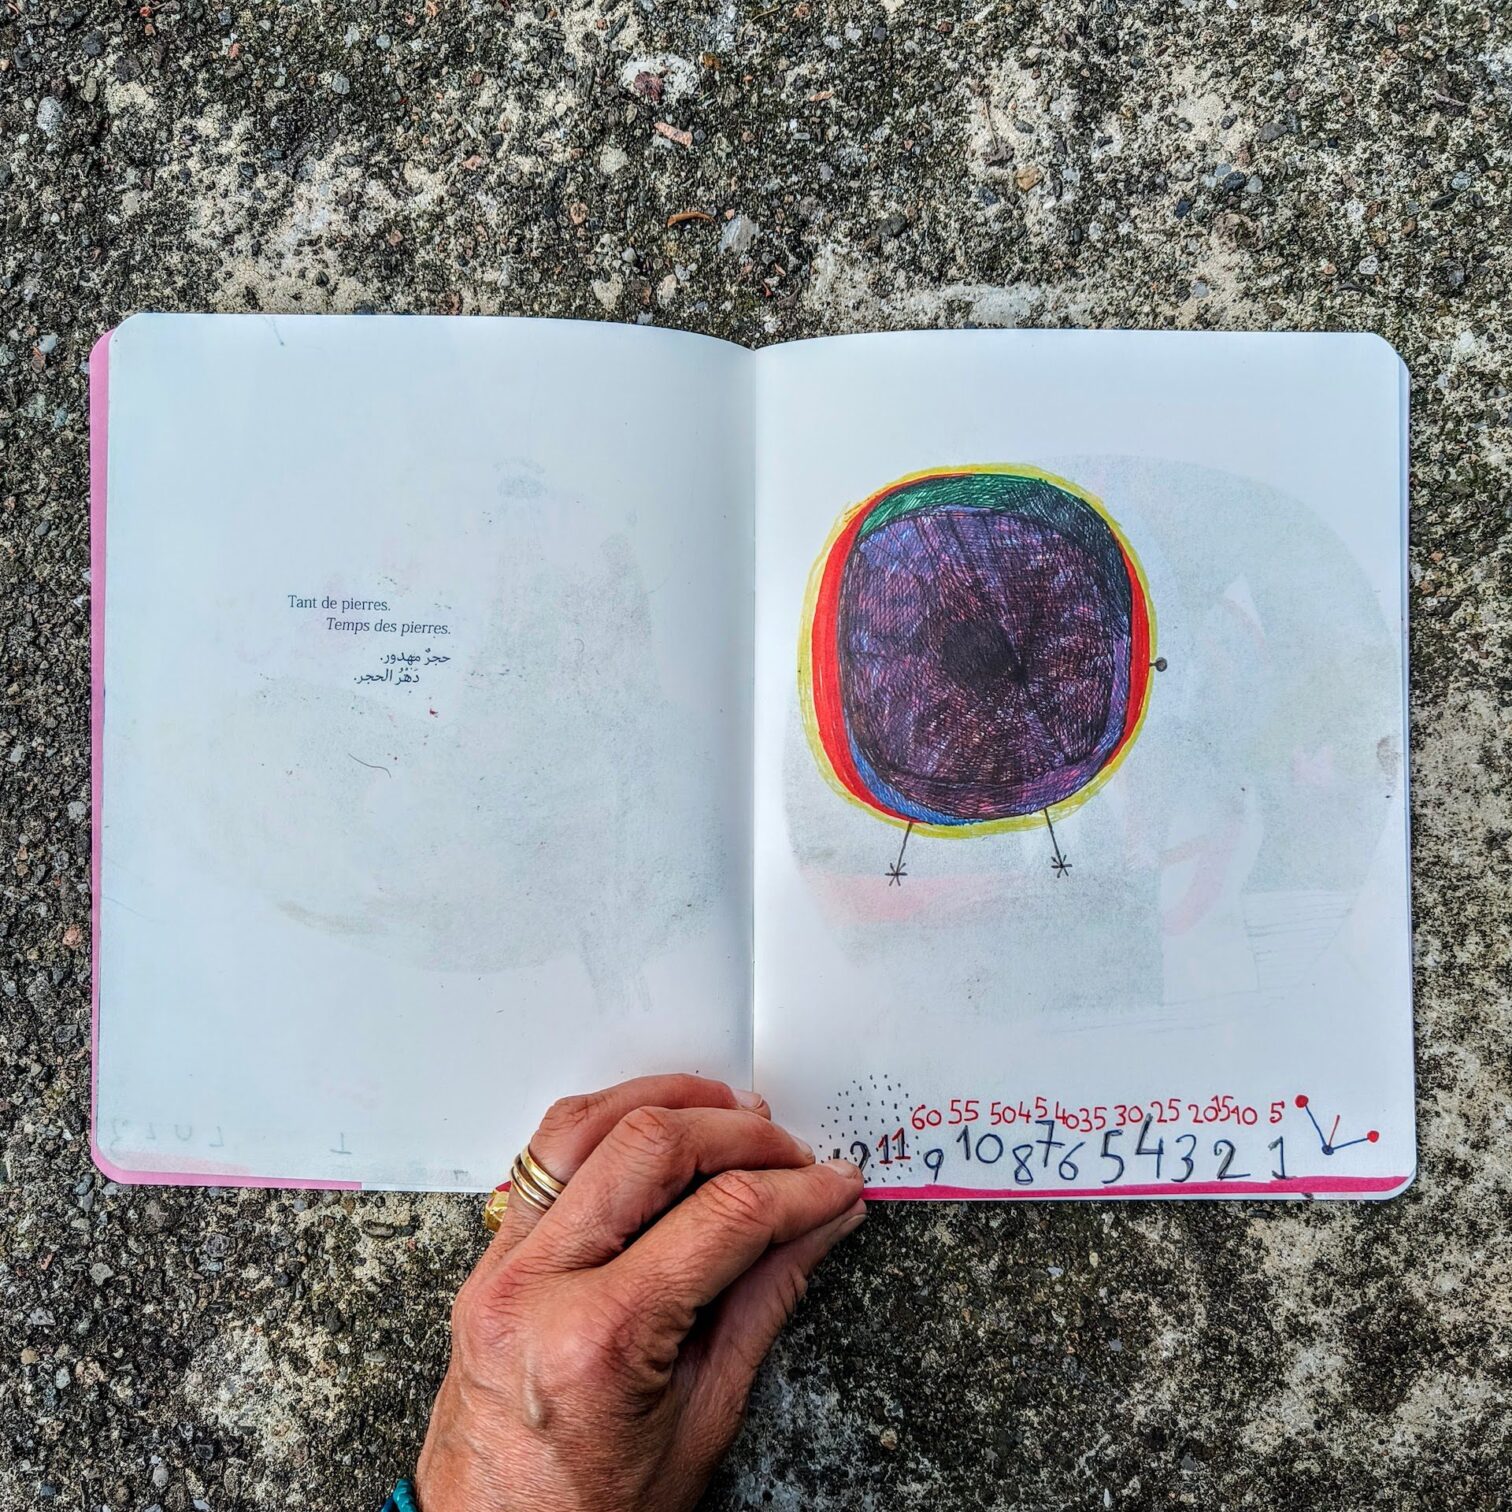 Tant de pierres.
Temps des pierres.
حجرٌ مهدور.
دَهْرُ الحجر.
60 55 50 45 40 35 30 25 20 15 10 5
12 11 9 10 8 7 6 5 4 3 2 1